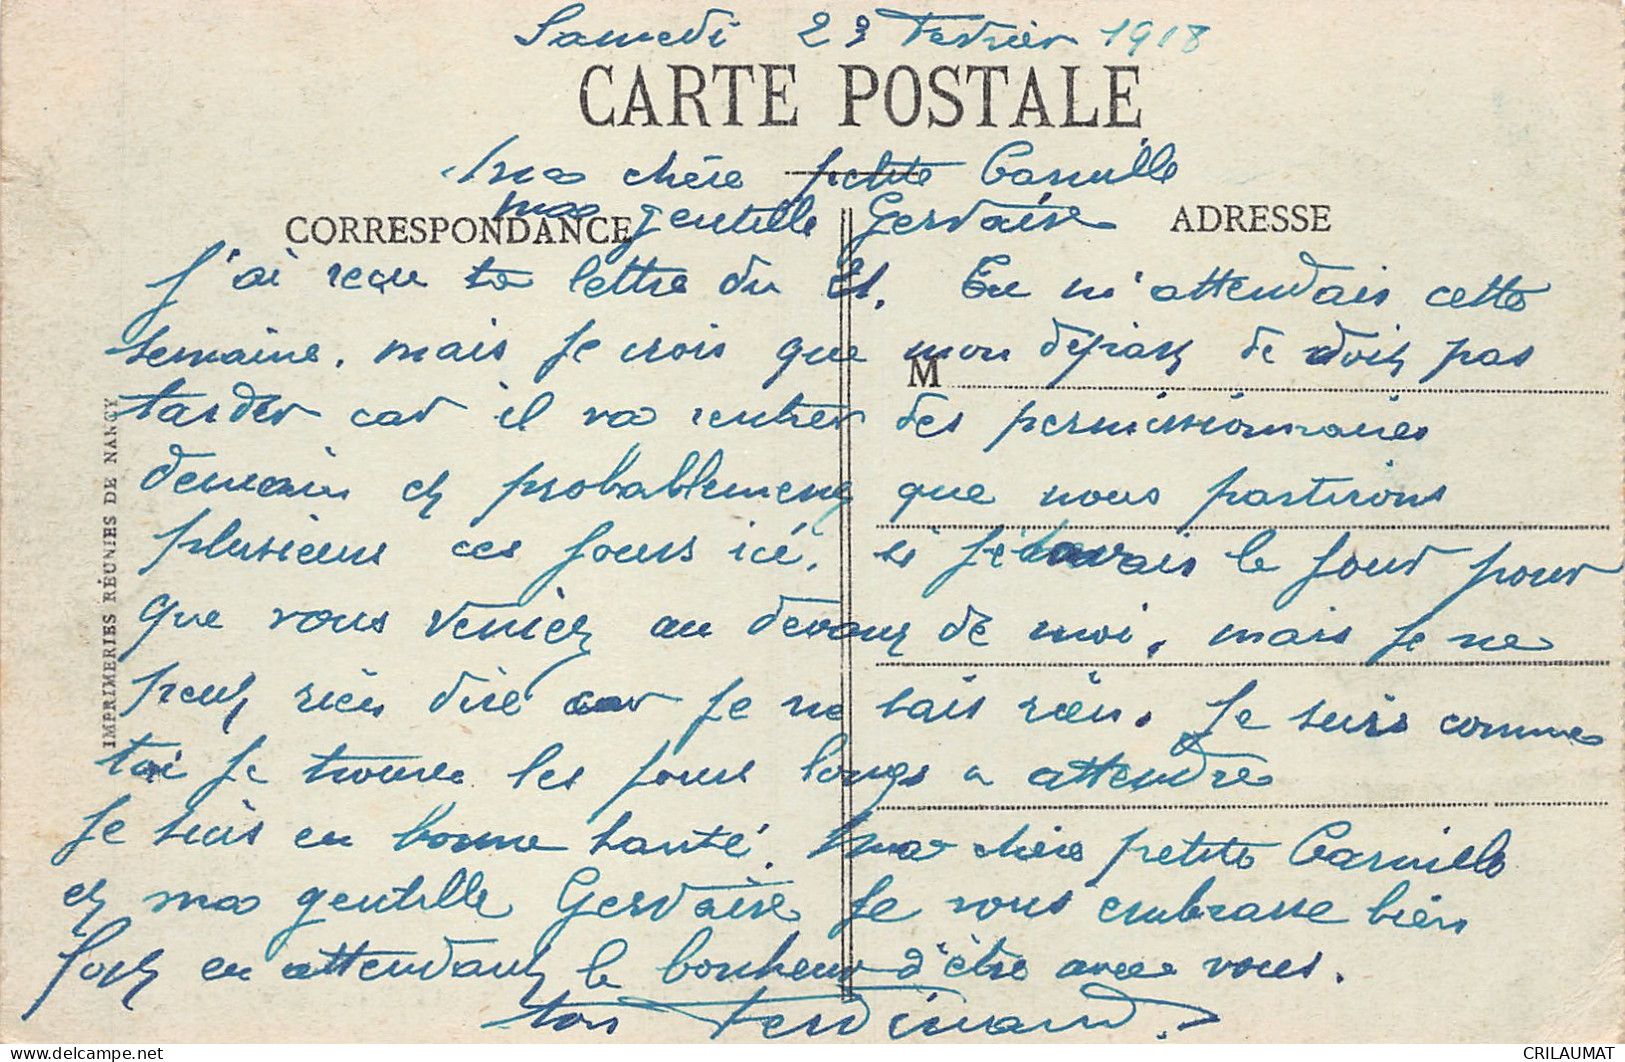 Samedi 23 Fevrier 1918
CARTE POSTALE
Ma chère petite Camille
ma gentille Gervaise
CORRESPONDANCE
ADRESSE
J'ai reçu ta lettre du 21. Tu m'attendais cette
semaine. mais je crois que mon départ ne doit pas
M
tarder car il va rentrer des permissionnaires
demain et probablement que nous partirons
plusieurs ces jours ici. si je savais le jour pour
que vous veniez au devant de moi, mais je ne
peut rien dire car je ne sais rien. Je suis comme
toi je trouve les jours longs a attendre
Je suis en bonne santé. Ma chère petite Camille
et ma gentille Gervaise je vous embrasse bien
fort en attendant le bonheur d'être avec vous.
ton Ferdinand.
IMPRIMERIES RÉUNIES DE NANCY
CRILAUMAT